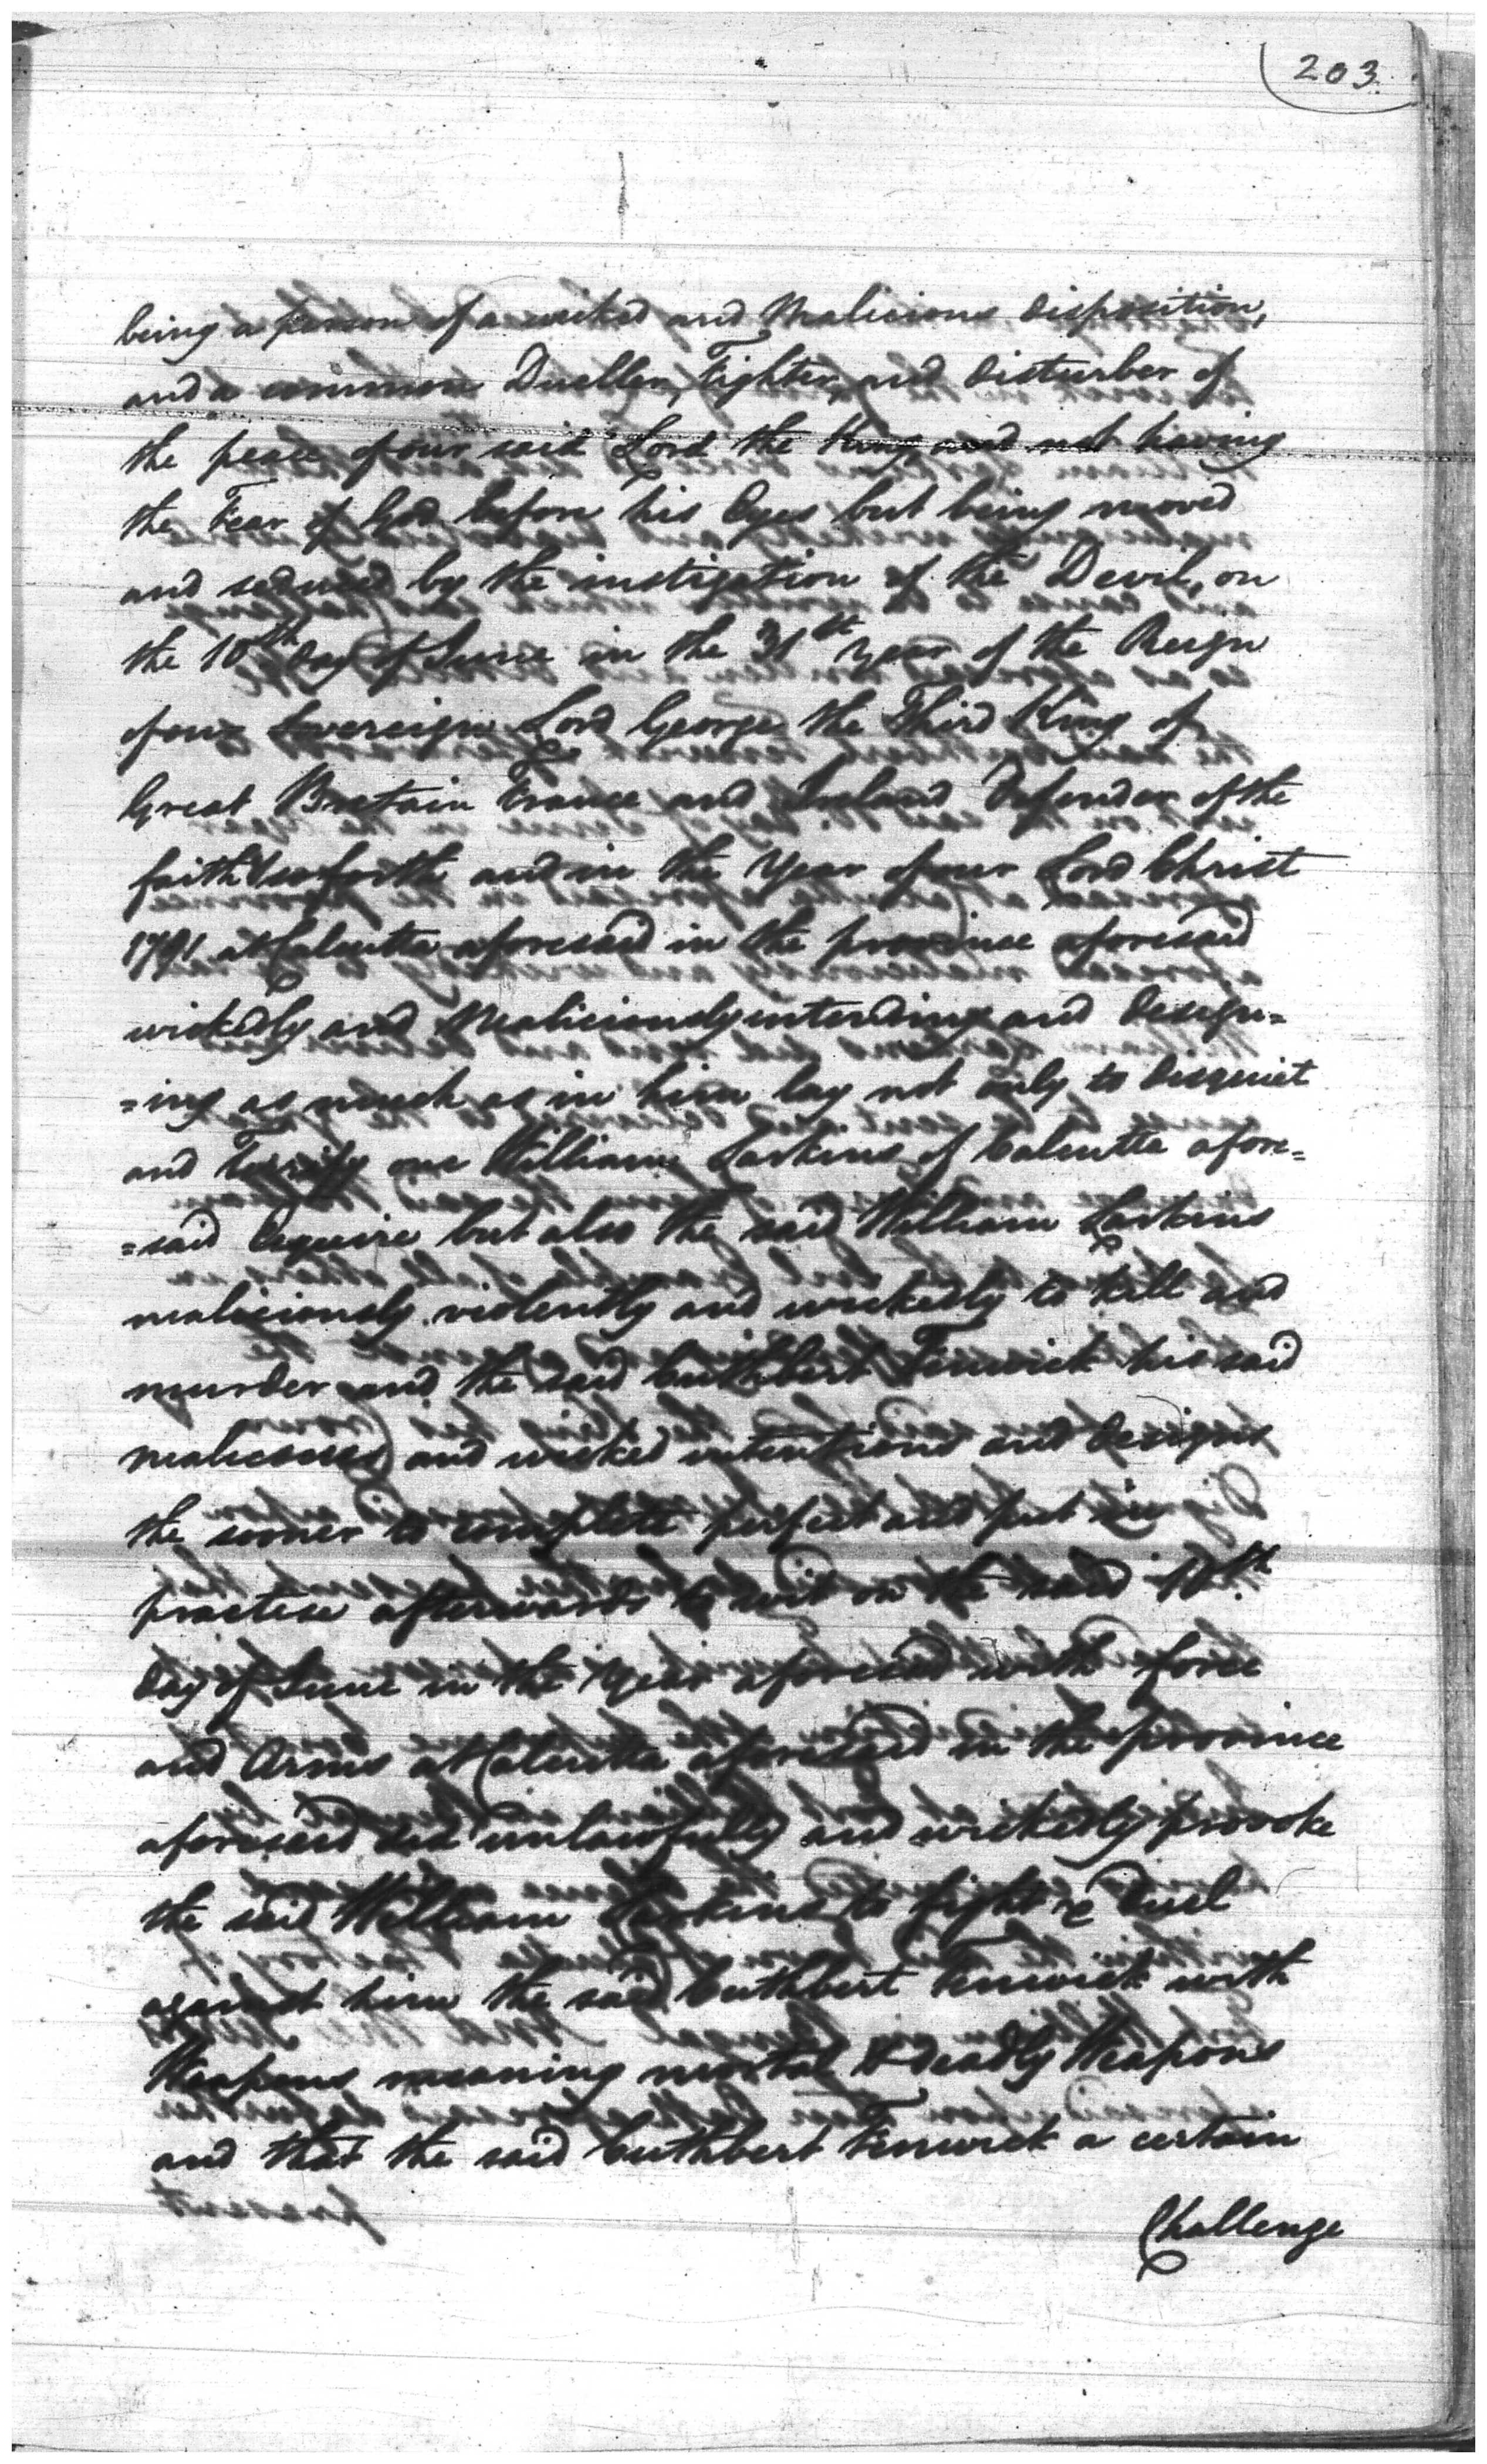 203
being a person of a wicked and Malicious disposition,
and a common Dueller, Fighter, and disturber of
the peace of our said Lord the King, and not having
the Fear of God before his Eyes but being moved
and seduced by the instigation of the Devil, on
the 10th day of June in the 31st year of the Reign
of our Sovereign Lord George the Third King of
Great Britain France and Ireland Defender of the
faith & so forth and in the Year of our Lord Christ
1791 at Calcutta aforesaid in the province aforesaid
wickedly and Maliciously intending and design=
=ing as much as in him lay not only to disquiet
and Terrify one William Larkins of Calcutta afore=
=said Esquire but also the said William Larkins
maliciously violently and wickedly to kill and
murder and the said Cuthbert Fenwick his said
malicious and wicked intentions and designs
the sooner to complete perfect and put in
practise afterwards to wit on the said 10th
day of June in the Year aforesaid with force
and Arms at Calcutta aforesaid in the province
aforesaid did unlawfully and wickedly provoke
the said William Larkins to fight a Duel
against him the said Cuthbert Fenwick with
Weapons meaning mortal & deadly Weapons
and that the said Cuthbert Fenwick a certain
Challenge